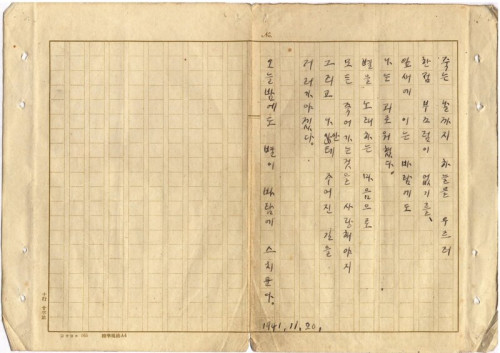 죽는 날까지 하늘을 우르러
한점 부끄럼이 없기를、
잎새에 이는 바람에도
나는 괴로워했다。
별을 노래하는 마음으로
모든 죽어가는것을 사랑해야지
그리고 나안테 주어진 길을
거러가야겠다。
오늘밤에도 별이 바람에 스치운다。
1941, 11, 20,